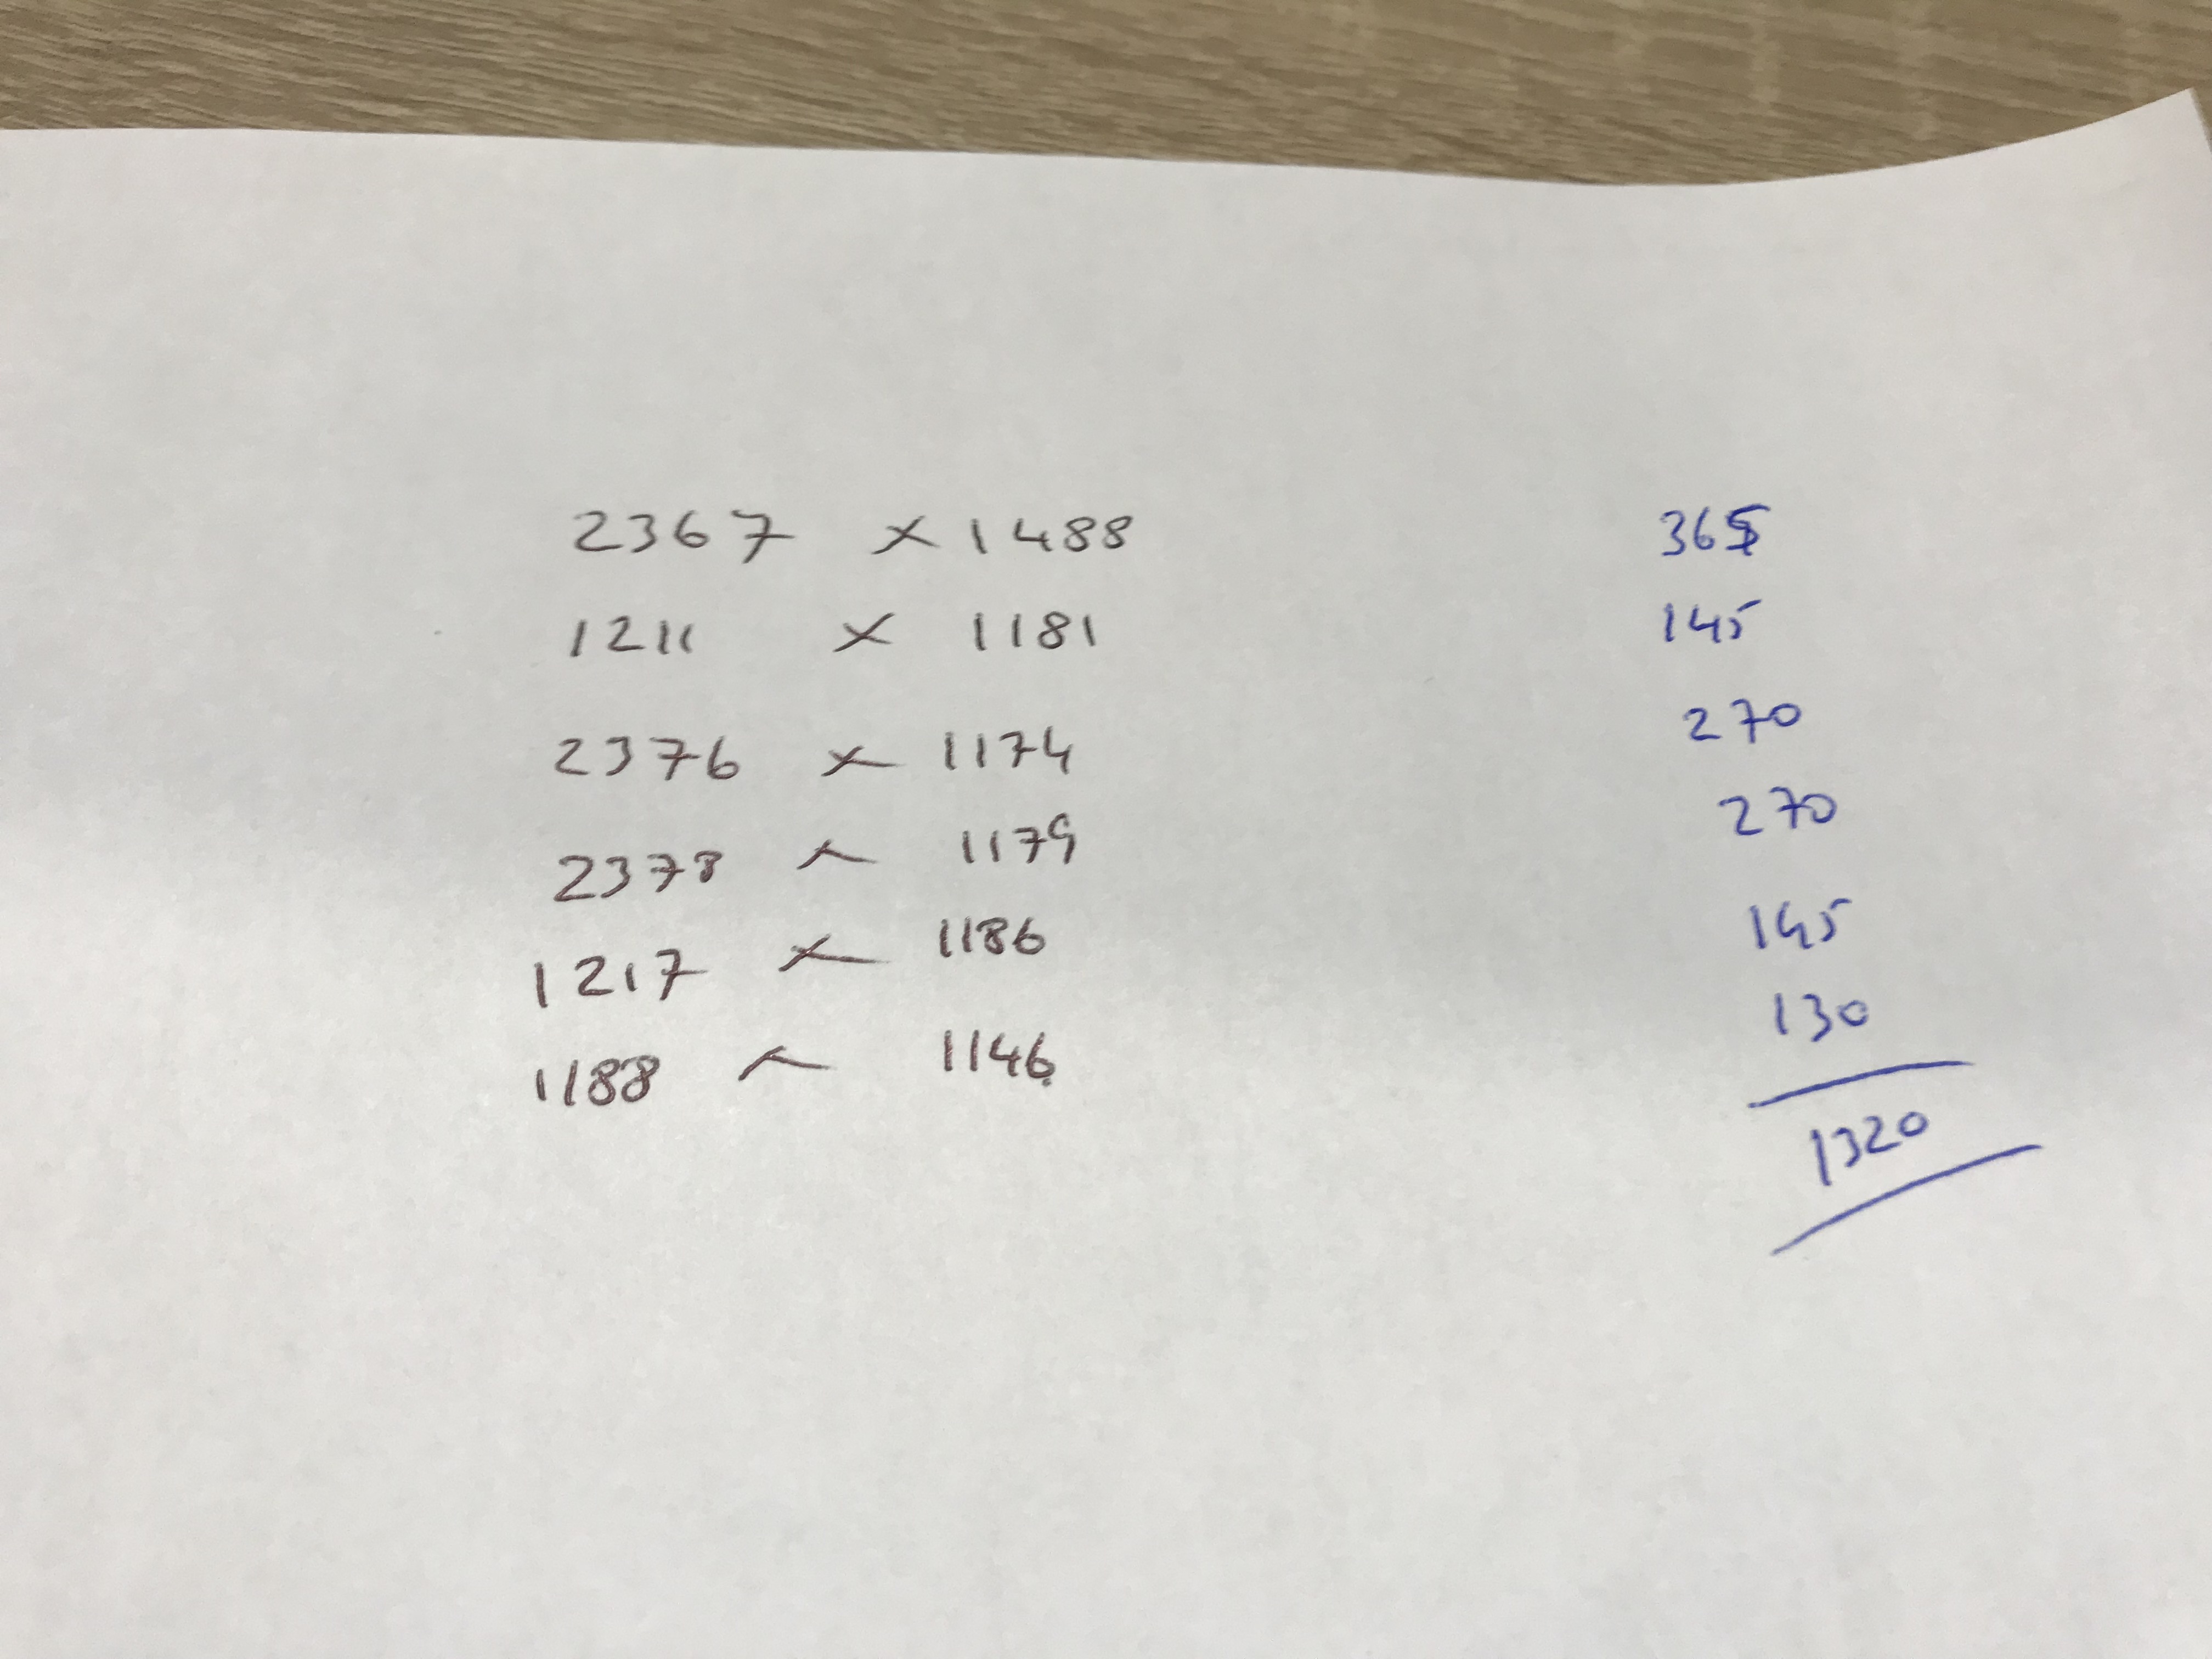 2367 x 1488 365
1211 x 1181 145
2376 x 1174 270
2378 x 1179 270
1217 x 1186 145
1188 x 1146 130
1320